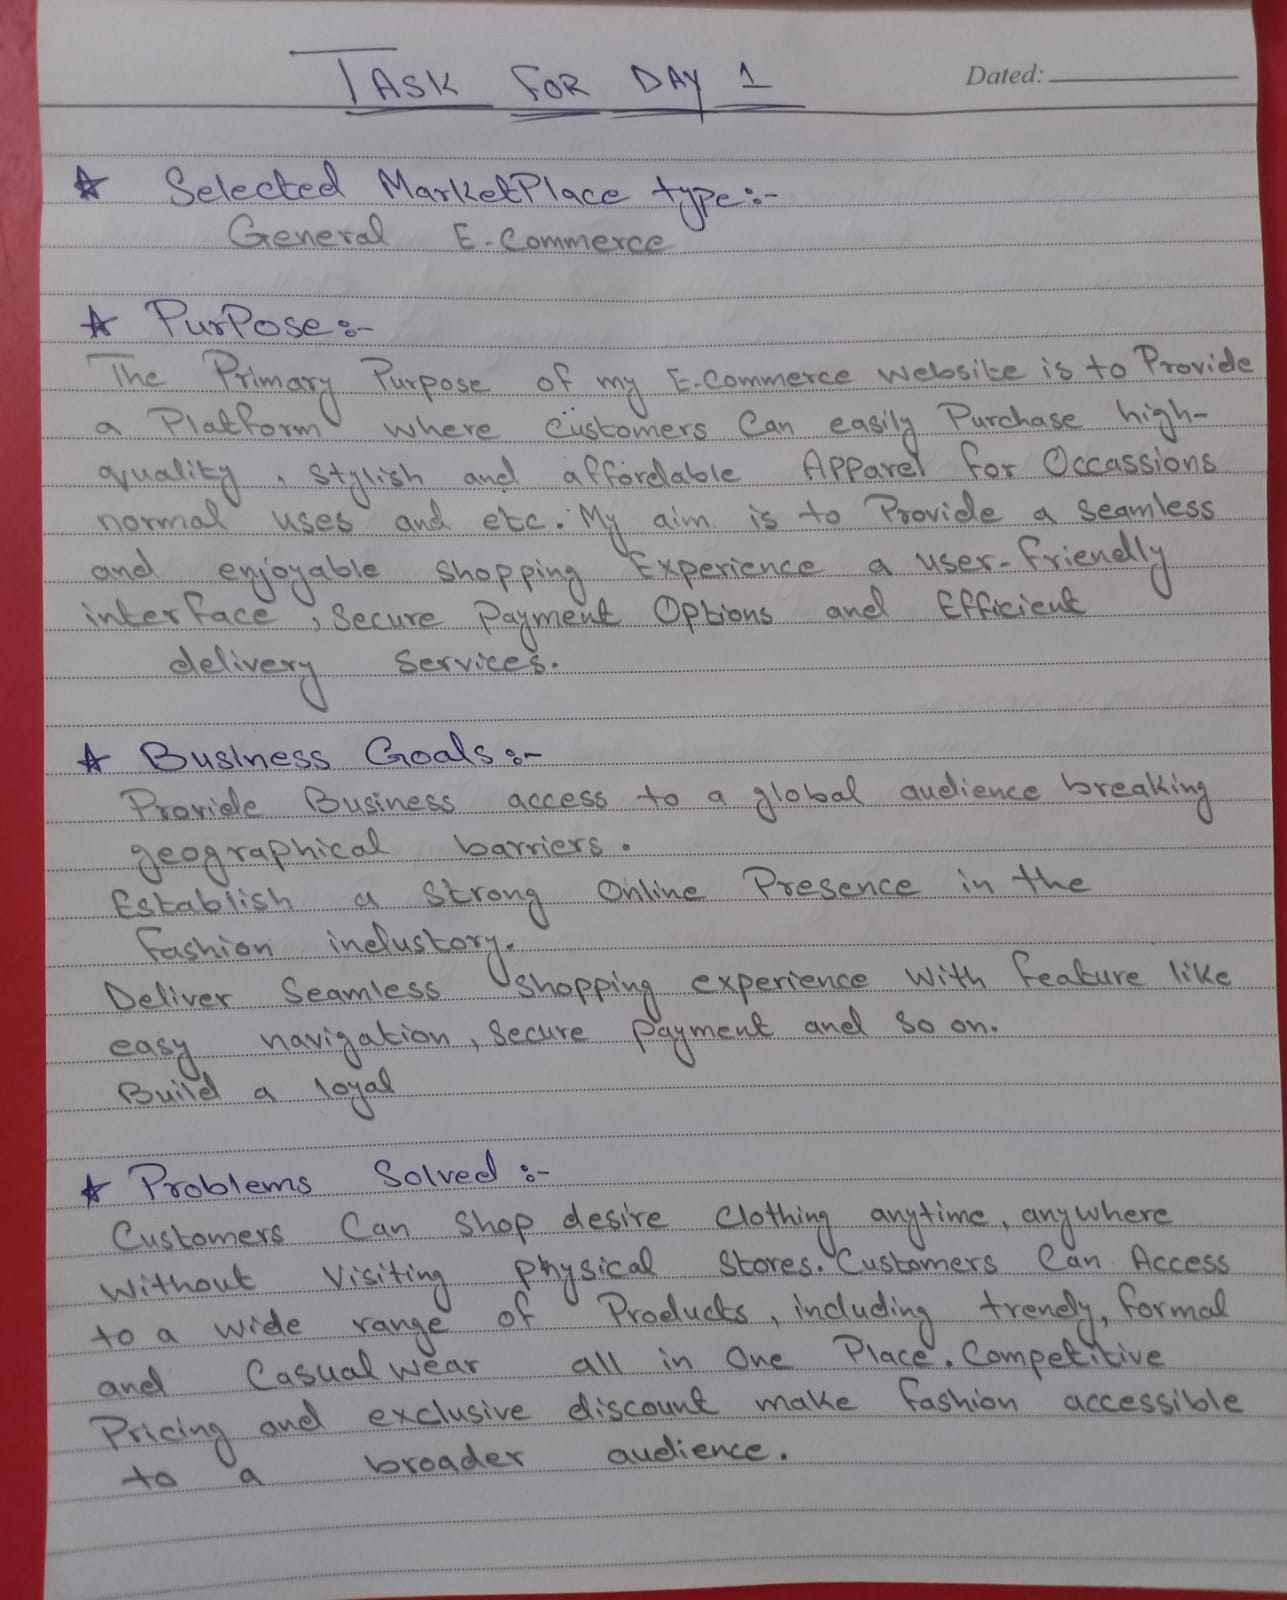 TASK FOR DAY 1
Dated:
☆ Selected MarketPlace type:-
General E-Commerce
☆ Purpose:-
The Primary Purpose of my E-Commerce website is to Provide
a Platform where customers Can easily Purchase high-
quality, stylish and affordable Apparel for Occassions
normal uses and etc. My aim is to Provide a seamless
and enjoyable shopping Experience a user-friendly
interface, Secure Payment Options and Efficient
delivery services.
☆ Business Goals:-
Provide Business access to a global audience breaking
geographical barriers.
Establish a Strong Online Presence in the
fashion industory.
Deliver Seamless shopping experience with feature like
easy navigation, Secure payment and so on.
Build a loyal
☆ Problems Solved:-
Customers Can shop desire clothing anytime, anywhere
without visiting physical stores. Customers Can Access
to a wide range of Products, including trendy, formal
and Casual wear all in One Place. Competitive
Pricing and exclusive discount make fashion accessible
to a broader audience.